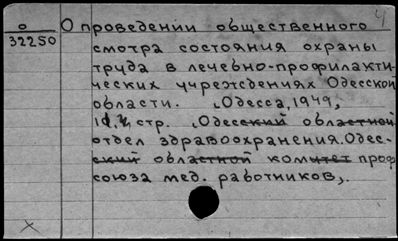 4
О
32250
О проведении общественного
смотра состояния охраны
труда в лечебно-профилакти-
ческих учреждениях Одесской
области. (Одесса, 1949,
стр. (Одесский областной
отдел здравоохранения. Одес-
ский областной комитет проф
союза мед. работников).